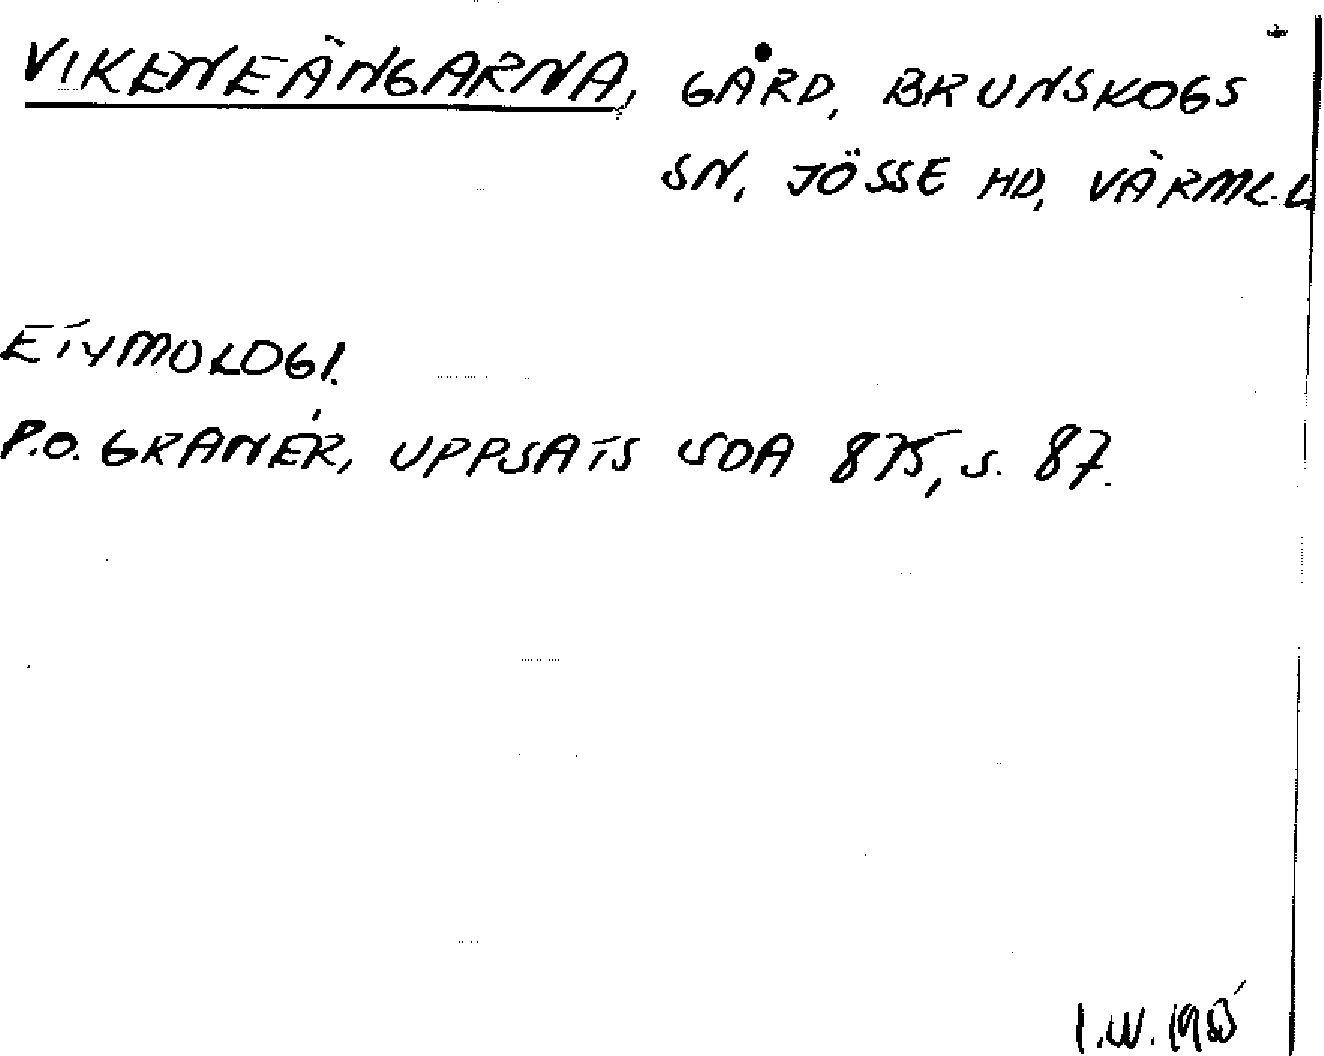 VIKENEÄNGARNA, GÅRD, BRUNSKOGS
SN, JÖSSE HD, VÄRML. L
ETYMOLOGI.
P.O. GRANÉR, UPPSATS SOA 875, S. 87.
I.W.